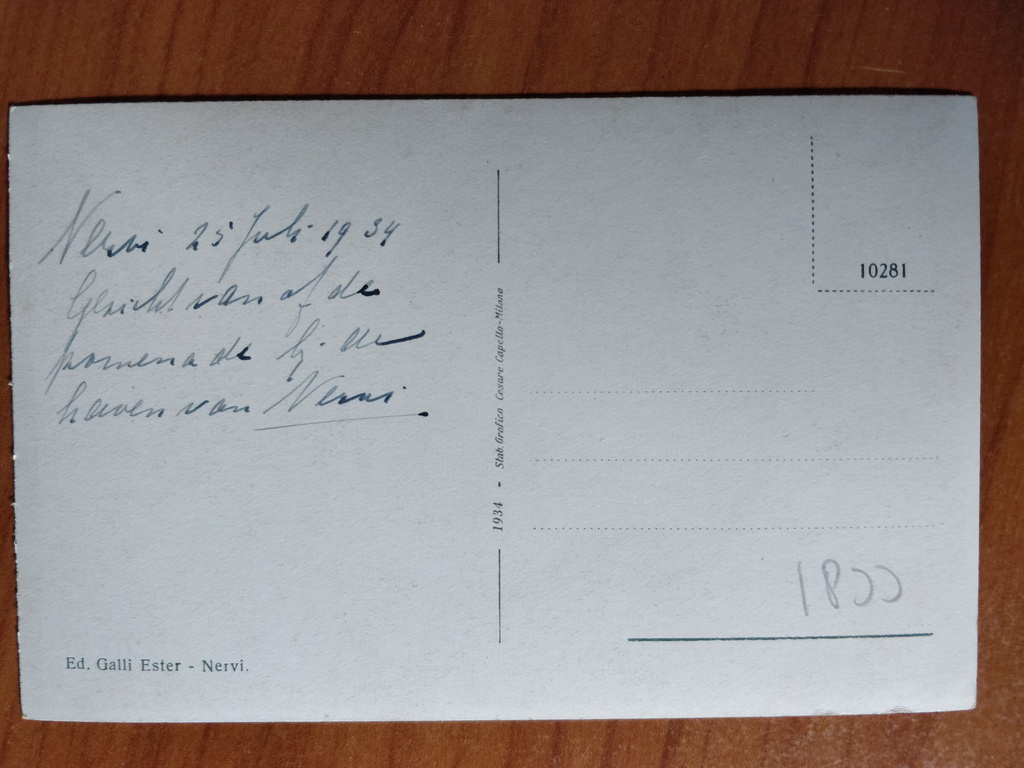 Nervi 25 Juli 1934
Gezicht van af de
promenade bij de
haven van Nervi.
Ed. Galli Ester - Nervi.
1934 - Stab. Grafico Cesare Capello - Milano
10281